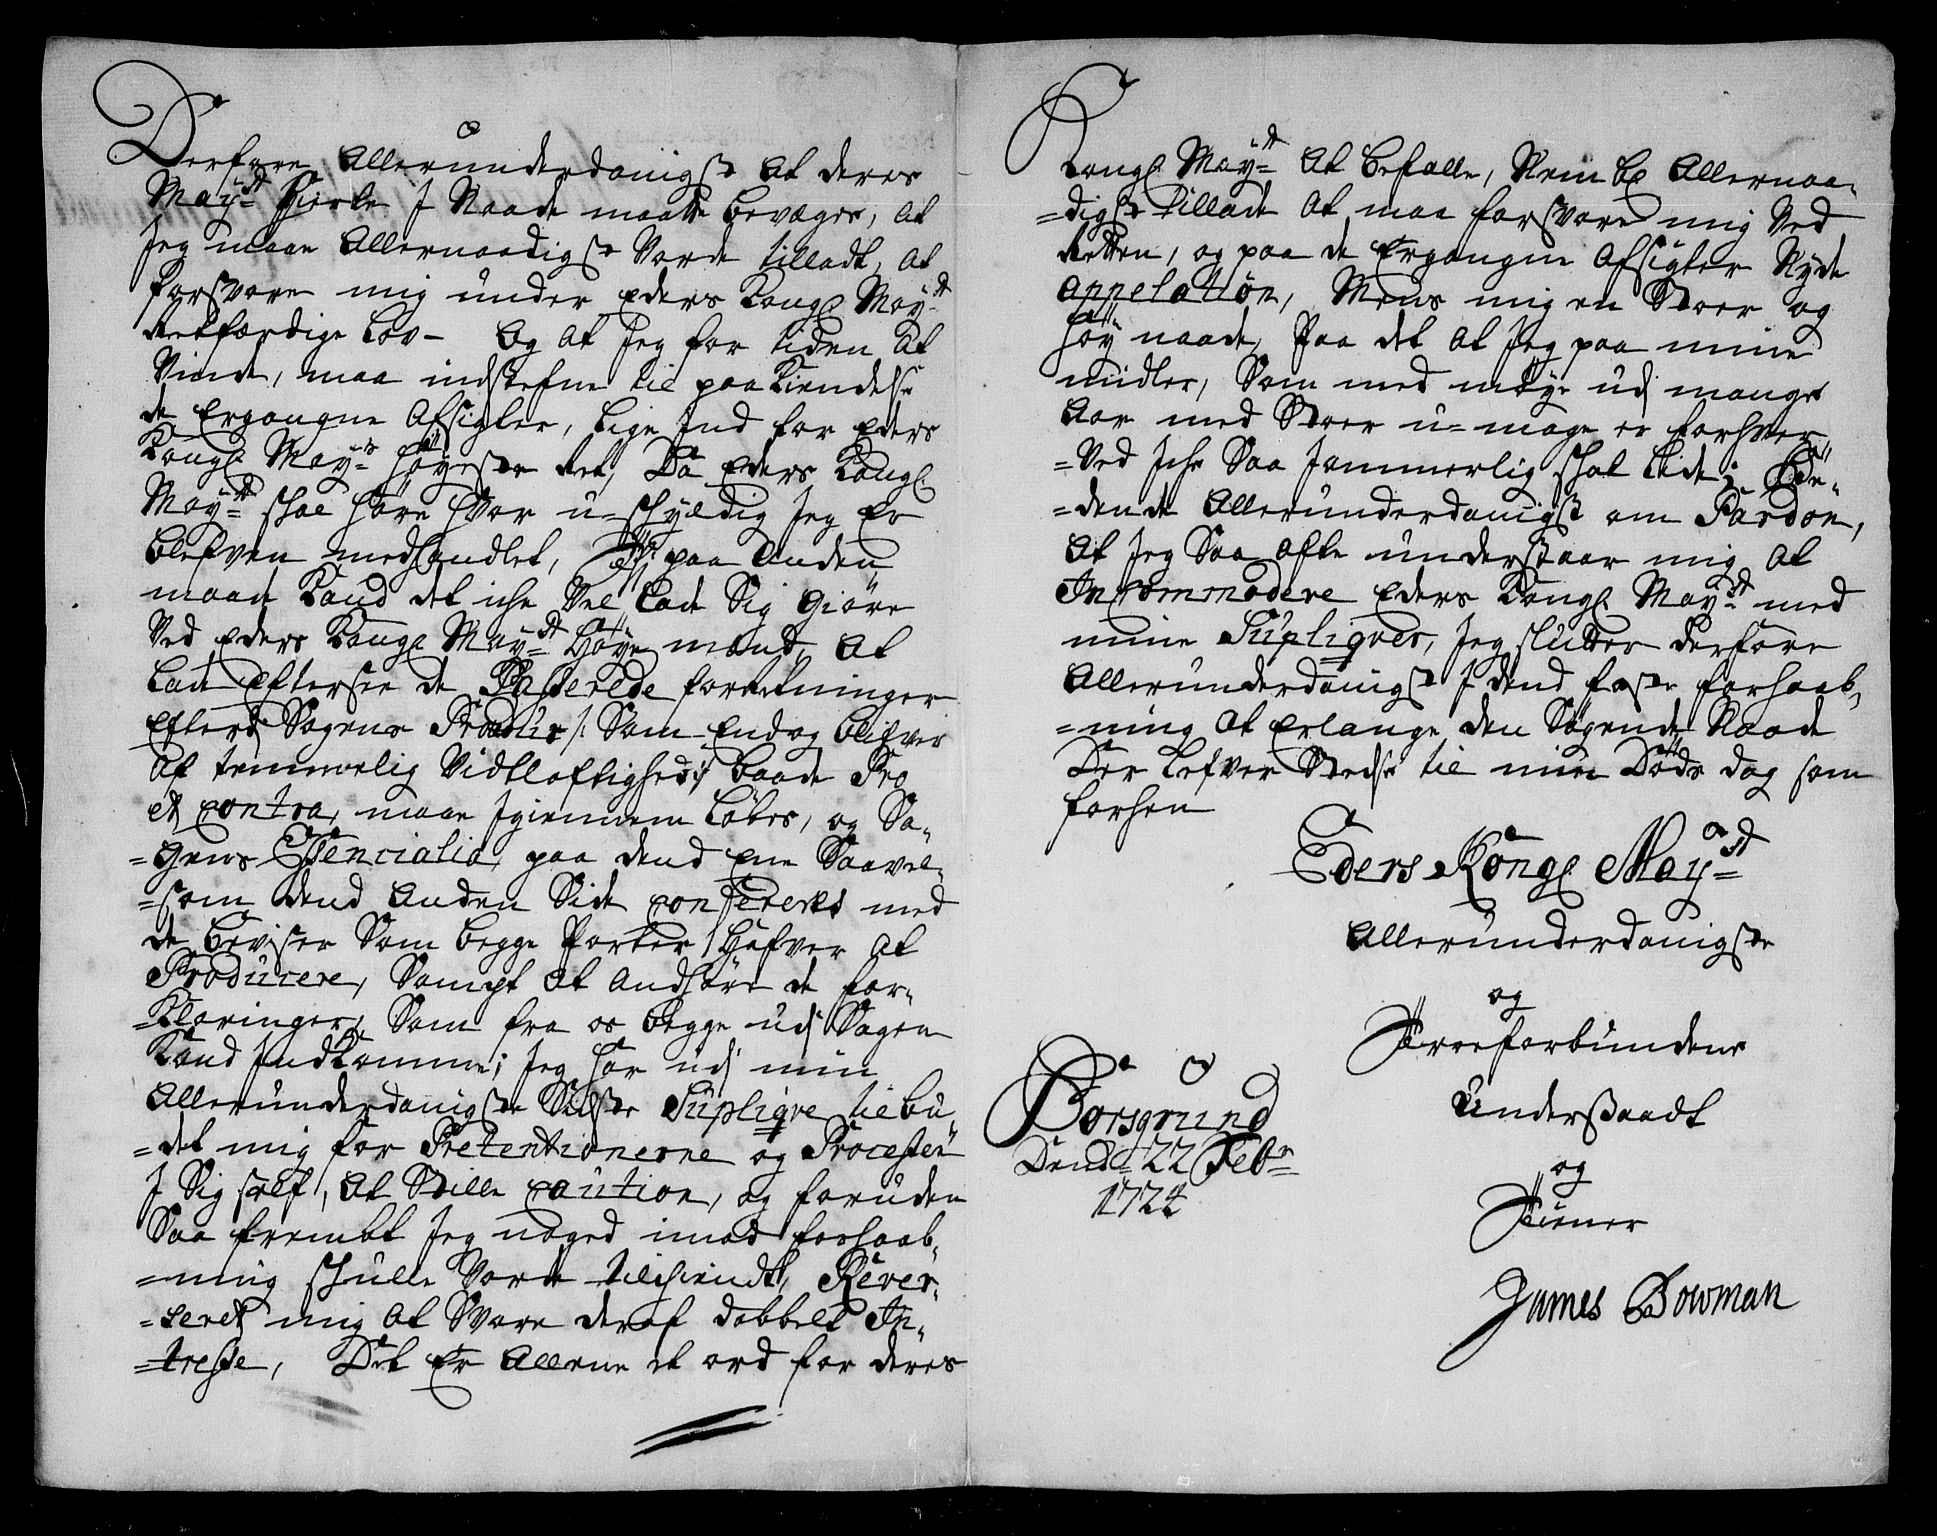 Derfore Allerunderdanigst At deres
May:tt Hierte J Naade maatte bevæges, At
Jeg maae Allernaadigste Vorde tilladt, At
forsvare mig under Eders Kongl May:tt
Retfærdige Lov - Og At Jeg for tiden At
Vinde, maa indstefne til paa Kiendelse
de Ergangne Afsigter, lige Ind for Eders
Kongl May:ts Høyeste Ret, Da Eders Kongl
May:tt skal høre hvor u-skyldig Jeg Er
blefven medhandlet, Thj paa Anden
maade Kand det iche Vel lade Sig Giøre
Ved Eders Kongl May:tt Høye mænd, At
lade Eftersee de Passerede forretninger
Efterdj Sagens Process /: Som Endog blifver
Af temmelig Vidtløftighed :/ baade Pro
et contra, maae Igiennem løbes, og Sa-
=gens Essencialia, paa dend Ene Saavel-
=som dend Anden Side confereres med
de beviser Som begge Parter Hafver At
Producere, Sampt At Andhøre de for-
=Klaringer, Som fra os begge udj Sagen
Kand Indkomme; Jeg har udj min
Allerunderdanigste Sidste Supliqve tilbu-
=det mig for Pretentionerne og Processen
J Sig self, At Stille caution, og foruden
Saa frembt Jeg noged imod forhaab-
=ning skulle Vorde tilkiendt, Rever-
=seret mig At Svare deraf dobbelt In-
=tresse, Det Er Allene et ord for deres
Kongl May:tt At befalle, Nem bl Allernaa-
=digste Tillade At maa forsvare mig Ved
Retten, og paa de Ergangne Afsigter Nyde
Appelation, Mens mig en Stoer og
høy naade, Paa det At Jeg paa mine
midler, Som med møye udj mange
Aar med Stoer u-mage er forhver-
=ved Iche Saa Jammerlig skal lide; Be-
=dende Allerunderdanigst om Pardon,
At Jeg Saa ofte understaar mig At
Incommodere Eders Kongl May:tt med
mine Supliqver, Jeg slutter derfore
Allerunderdanigst J dend faste forhaab-
=ning At Erlange den Søgende Naade
Der lefver Stedse til min Døds dag som
forhen
Eders Kongl May:tt
Allerunderdanigste
og
Troeforbundene
Undersaadt
og
Tiener
James Bowman
Borsgrund
Dend 22 Febr
1724